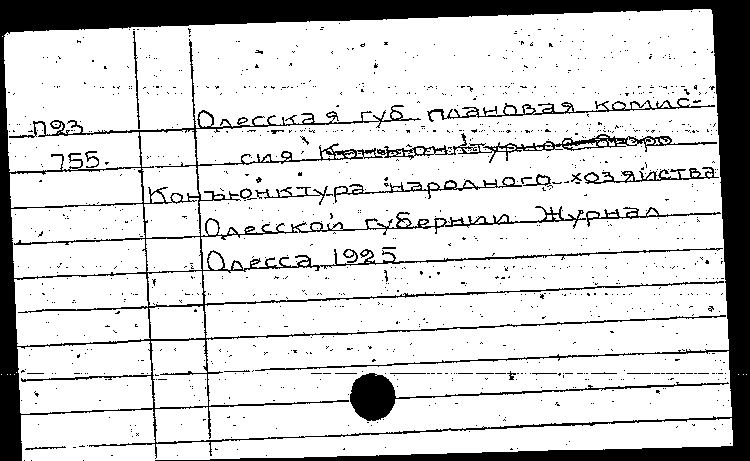 П23 Одесская губ плановая комис-
755. сия. Конъюнктурное бюро
Конъюнктура народного хозяйства
Одесской губернии Журнал
Одесса, 1925